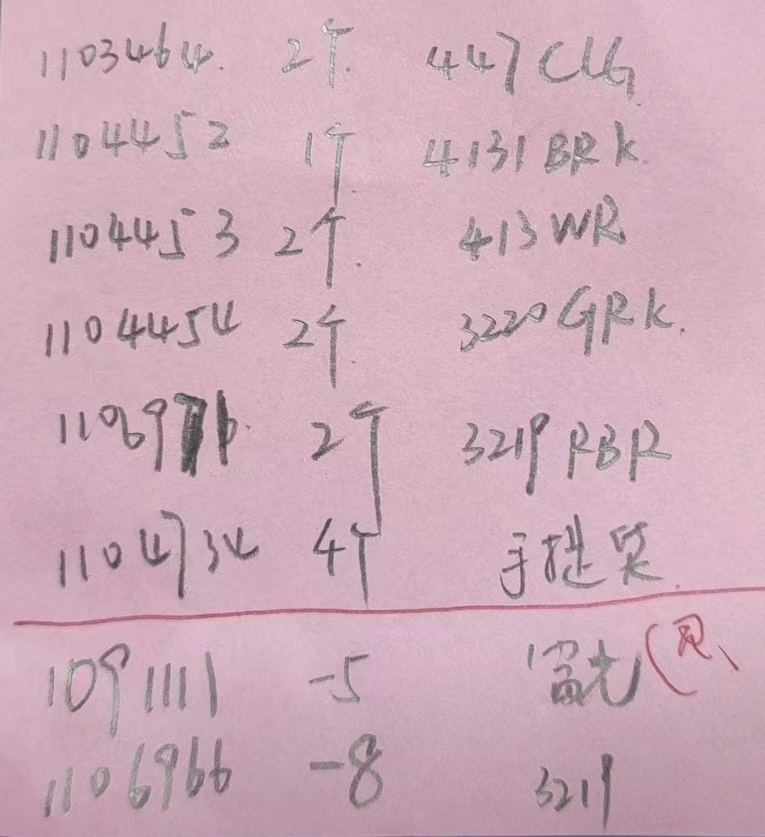 1103464. 2个. 447 CLG
1104452 1个. 4131 BRK.
1104453 2个. 413 WR
1104454 2个. 3220 GRK.
11069 6. 2个 3219 RBR
1104734 4个 手提
1091111 -5 富光
1106966 -8 3219